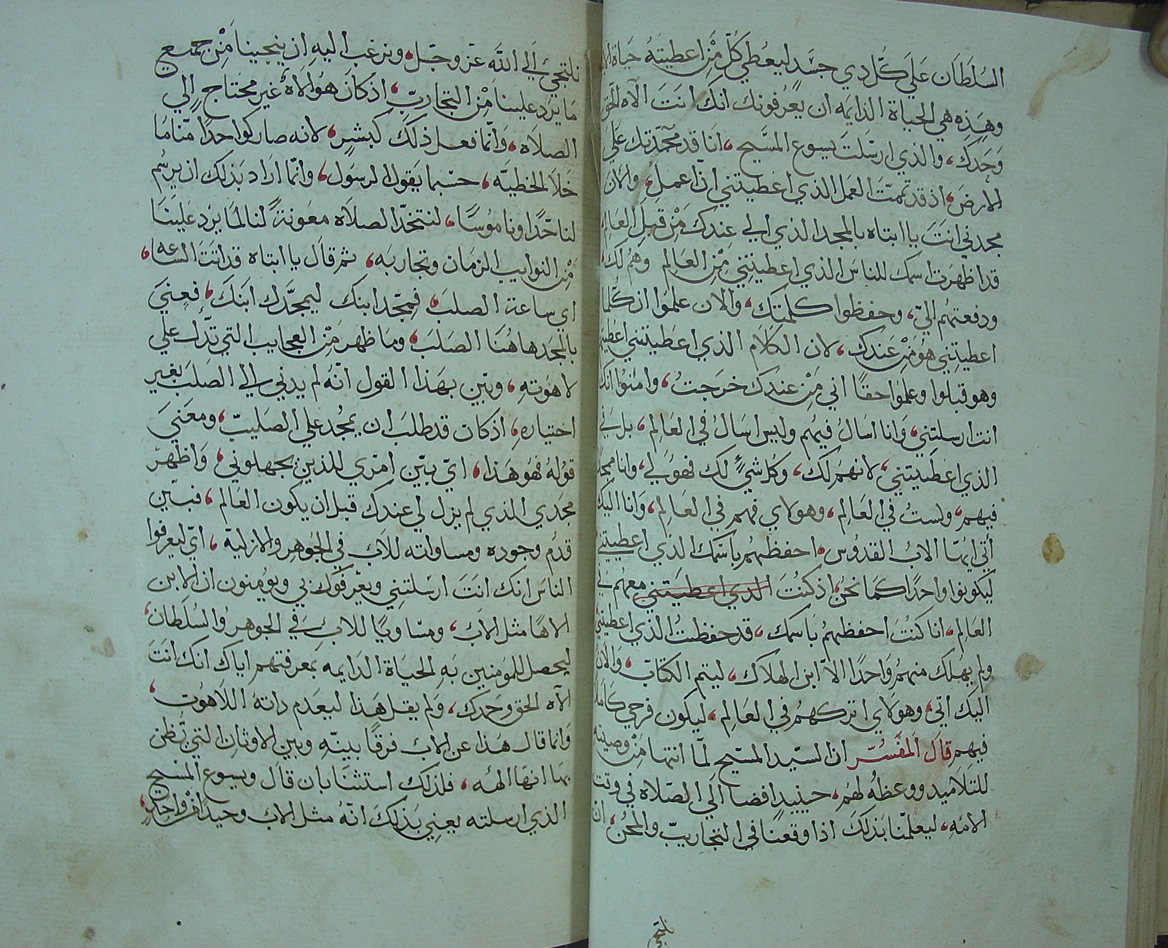 السلطان علي كل دي جسد ليعطي كل من اعطيته حياة الا
وهذه هي الحياة الدايمه ان يعرفونك انك انت الاه الحق
وحدك، والذي ارسلت يسوع المسيح، انا قد مجدتك علي
الارض، اذ قد تممت العمل الذي اعطيتني اذا عمل، والان
مجدني انت يا ابتاه بالمجد الذي لي عندك من قبل العالم
قد اظهرت اسمك للناس الذي اعطيتني من العالم وهم لك
ودفعتهم الي، وحفظوا كلمتك، والان علموا ان كلما
اعطيتني هو من عندك، لان الكلام الذي اعطيتني اعطيتهم
وهو قبلوا وعلموا حقا اني من عندك خرجت، وامنوا انك
انت ارسلتني، وانا اسال فيهم وليس اسال في العالم، بل في
الذي اعطيتني، لانهم لك، وكل شيء لك فهو لي، وانا ممجد
فيهم، ولست في العالم، وهولاي فهم في العالم، وانا اليك
اتي ايها الاب القدوس، احفظهم باسمك الذي اعطيتني
ليكونوا واحدا كما نحن، اذ كنت الذي اعطيتني معهم في
العالم، انا كنت احفظهم باسمك، قد حفظت الذي اعطيتني
ولم يهلك منهم واحدا الا ابن الهلاك، ليتم الكتاب، والان
اليك اتي، وهولاي اتركهم في العالم، ليكون فرحي كاملا
فيهم قال المفسر ان السيد المسيح لما انتها من وصيته
للتلاميد ووعظه لهم، حينيد افضا الي الصلاه في وقت
الامه، ليعلمنا بذلك اذا وقعنا في التجاريب والمحن، ان
نلتجي
نلتجي الي الله عز وجل، ونرغب اليه ان ينجينا من جميع
ما يرد علينا من التجاريب، اذ كان هو الاه غير محتاج الي
الصلاه، وانما فعل ذلك كبشر، لانه صار كواحدا منا ما
خلا الخطيه، حسبما يقول الرسول، وانما اراد بذلك ان يرسم
لنا حدا وناموسا، لنتخد الصلاه معونة لنا لما يرد علينا
من النوايب الزمان وتجاربه، ثم قال يا ابتاه قد اتت الساعه،
اي ساعة الصلب، فمجد ابنك ليمجدك ابنك، فعني
بالمجد هاهنا الصلب، وما ظهر من العجايب التي تدل علي
لاهوته، وبين بهذا القول انه لم يدني الي الصلب بغير
اختياره، اذ كان قد طلب ان يمجد علي الصليب، ومعني
قوله هو هذا، اي بين امري للذين يجهلوني، واظهر
مجدي الذي لم يزل لي عندك قبل ان يكون العالم، فبين
قدم وجوده ومساواته للاب في الجوهر والازلية، اي ليعرفوا
الناس انك انت ارسلتني ويعرفوك بي ويومنون ان الابن
الاها مثل الاب، ومساويا للاب في الجوهر والسلطان،
ليحصل للمومنين به الحياة الدايمه بمعرفتهم اياك انك انت
الاه الحق وحدك، ولم يقل هذا ليعدم داته اللاهوت،
وانما قال هذا عن الاب فرقا بينه وبين الاوثان التي تظن
بها انها الهه، فلذلك استثنا بان قال ويسوع المسيح
الذي ارسلته يعني بذلك انه مثل الاب وحيدا من واحد،